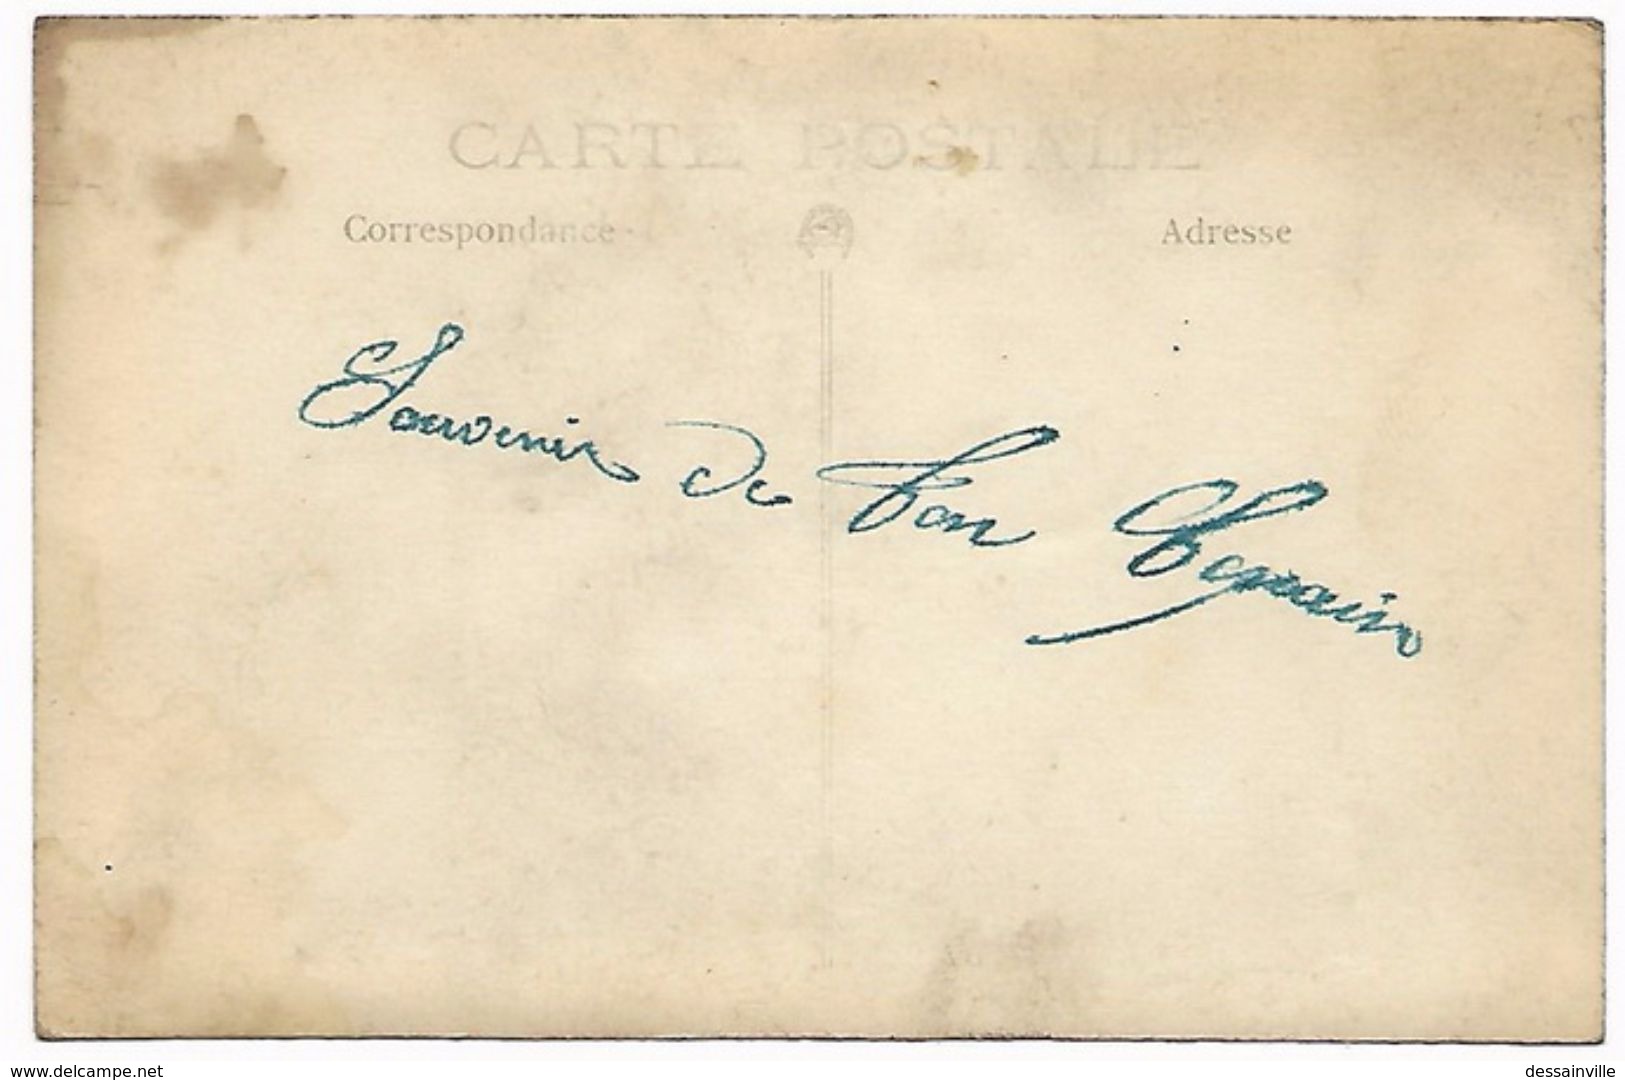 CARTE POSTALE
Correspondance
Adresse
Souvenir de ton
www.delcampe.net
dessainville